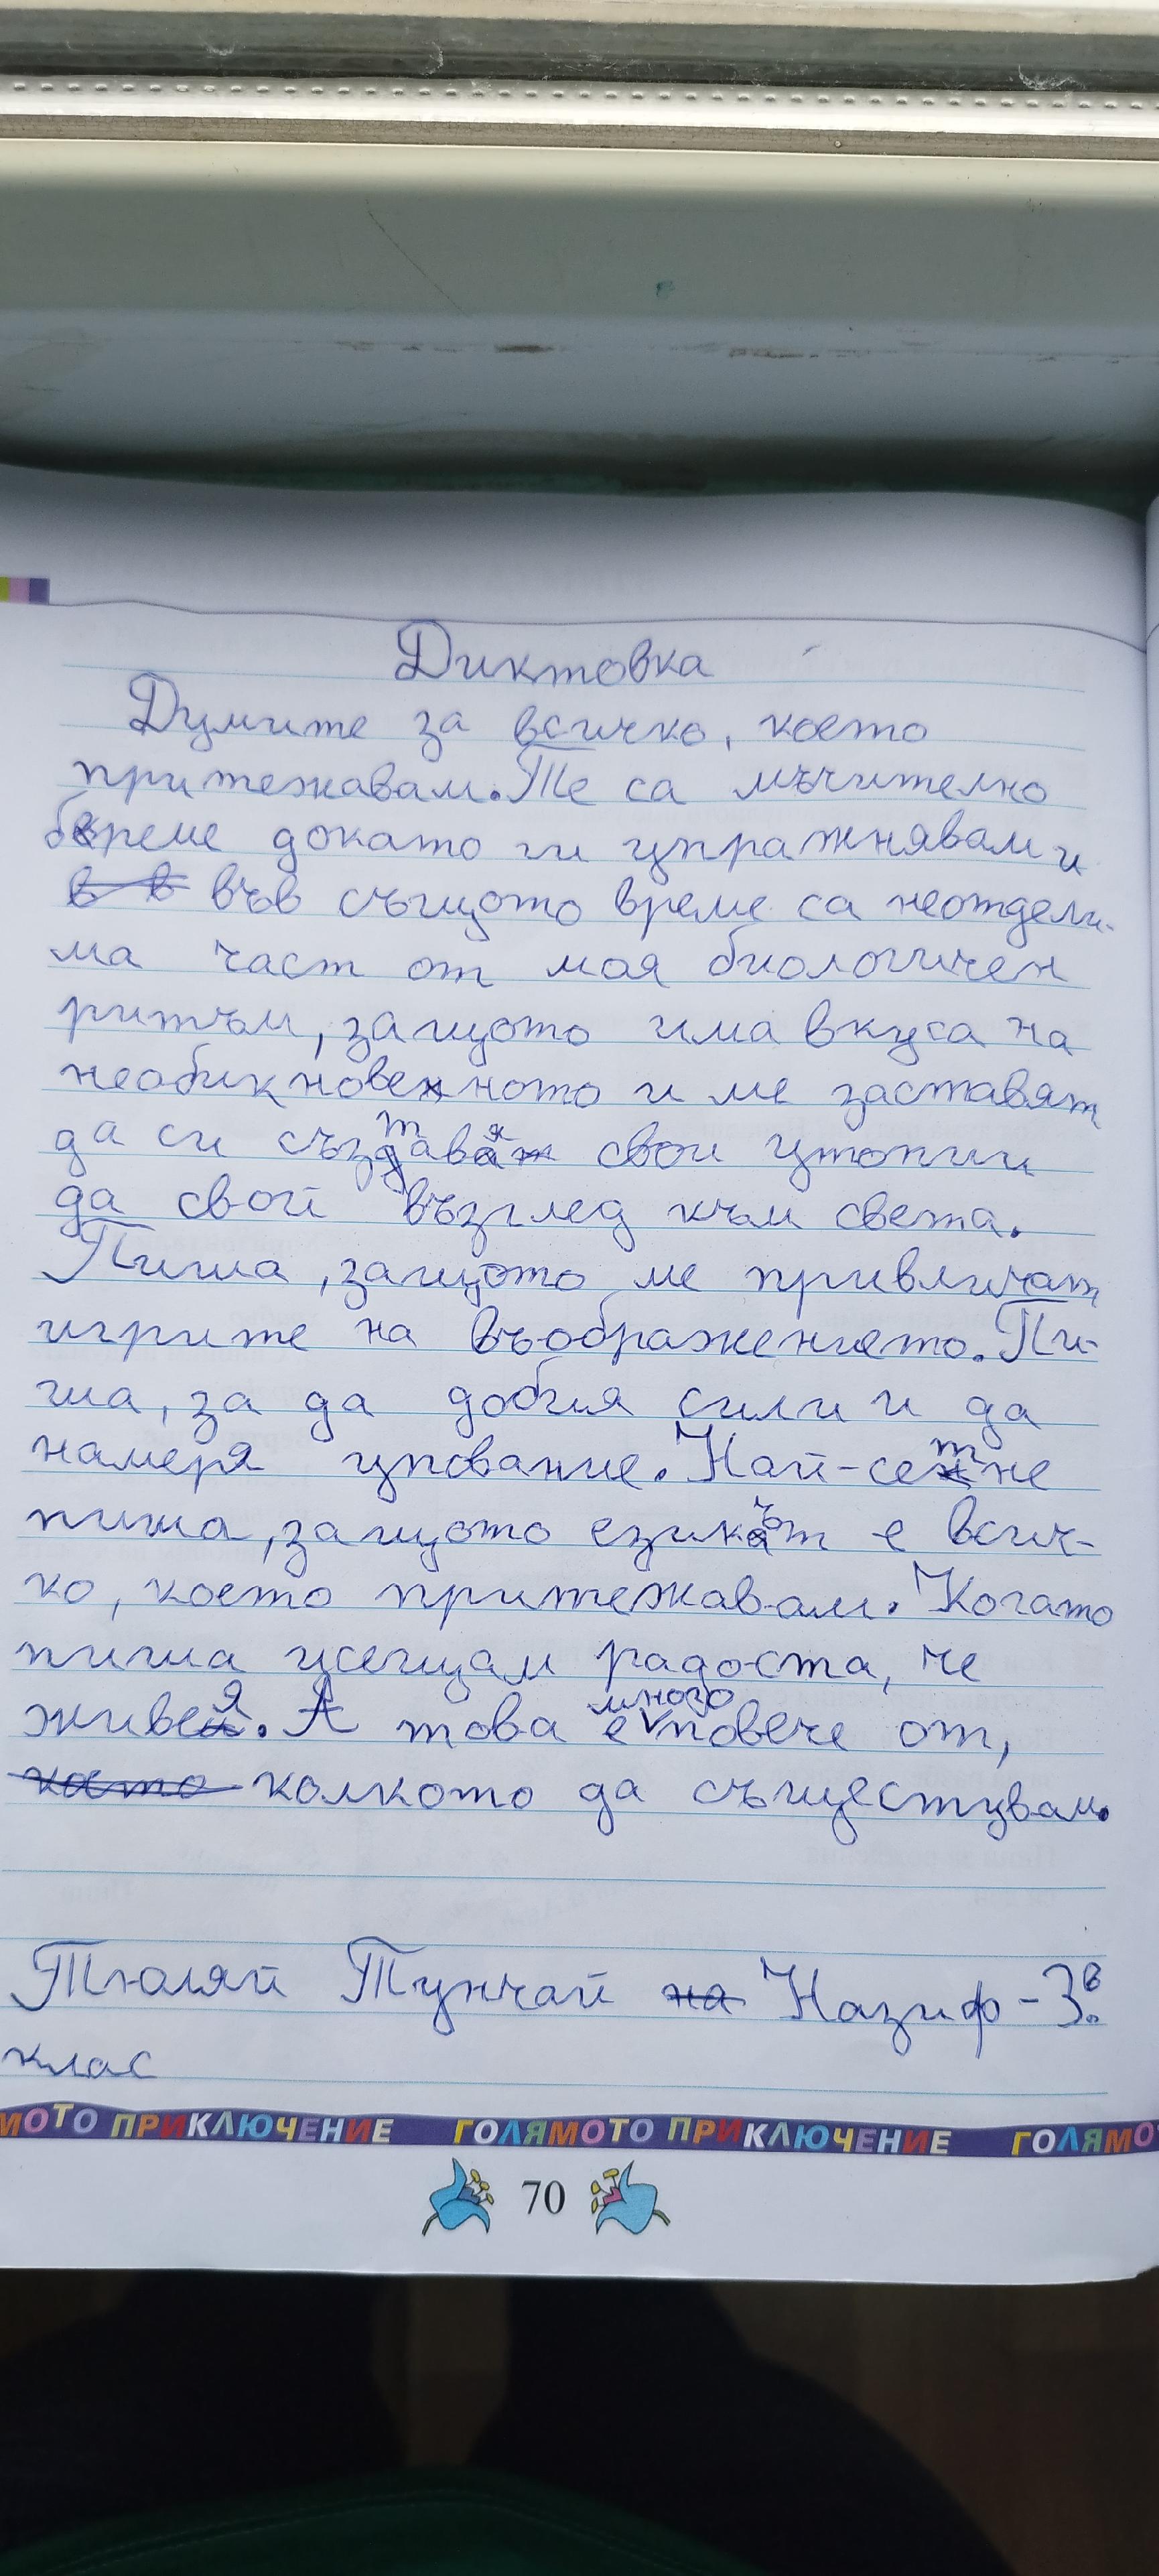 Диктовка
Думите за всичко, което
притежавам. Те са мъчително
бреме докато ги упражнявам и
във същото време са неотдели-
ма част от мая биологичен
ритъм, защото има вкуса на
необикновеното и ме заставят
да си създавая свои утопии
да свой възглед към света.
Пиша, защото ме привличат
игрите на въображението. Пи-
ша, за да добия сили и да
намеря упование. Най-сетне
пиша, защото езикът е всич-
ко, което притежавам. Когато
пиша усещам радоста, че
живея. А това е много повече от,
колкото да съществувам.
Тюляй Тунчай Назиф - 3в
клас
МОТО ПРИКЛЮЧЕНИЕ ГОЛЯМОТО ПРИКЛЮЧЕНИЕ ГОЛЯМО
70